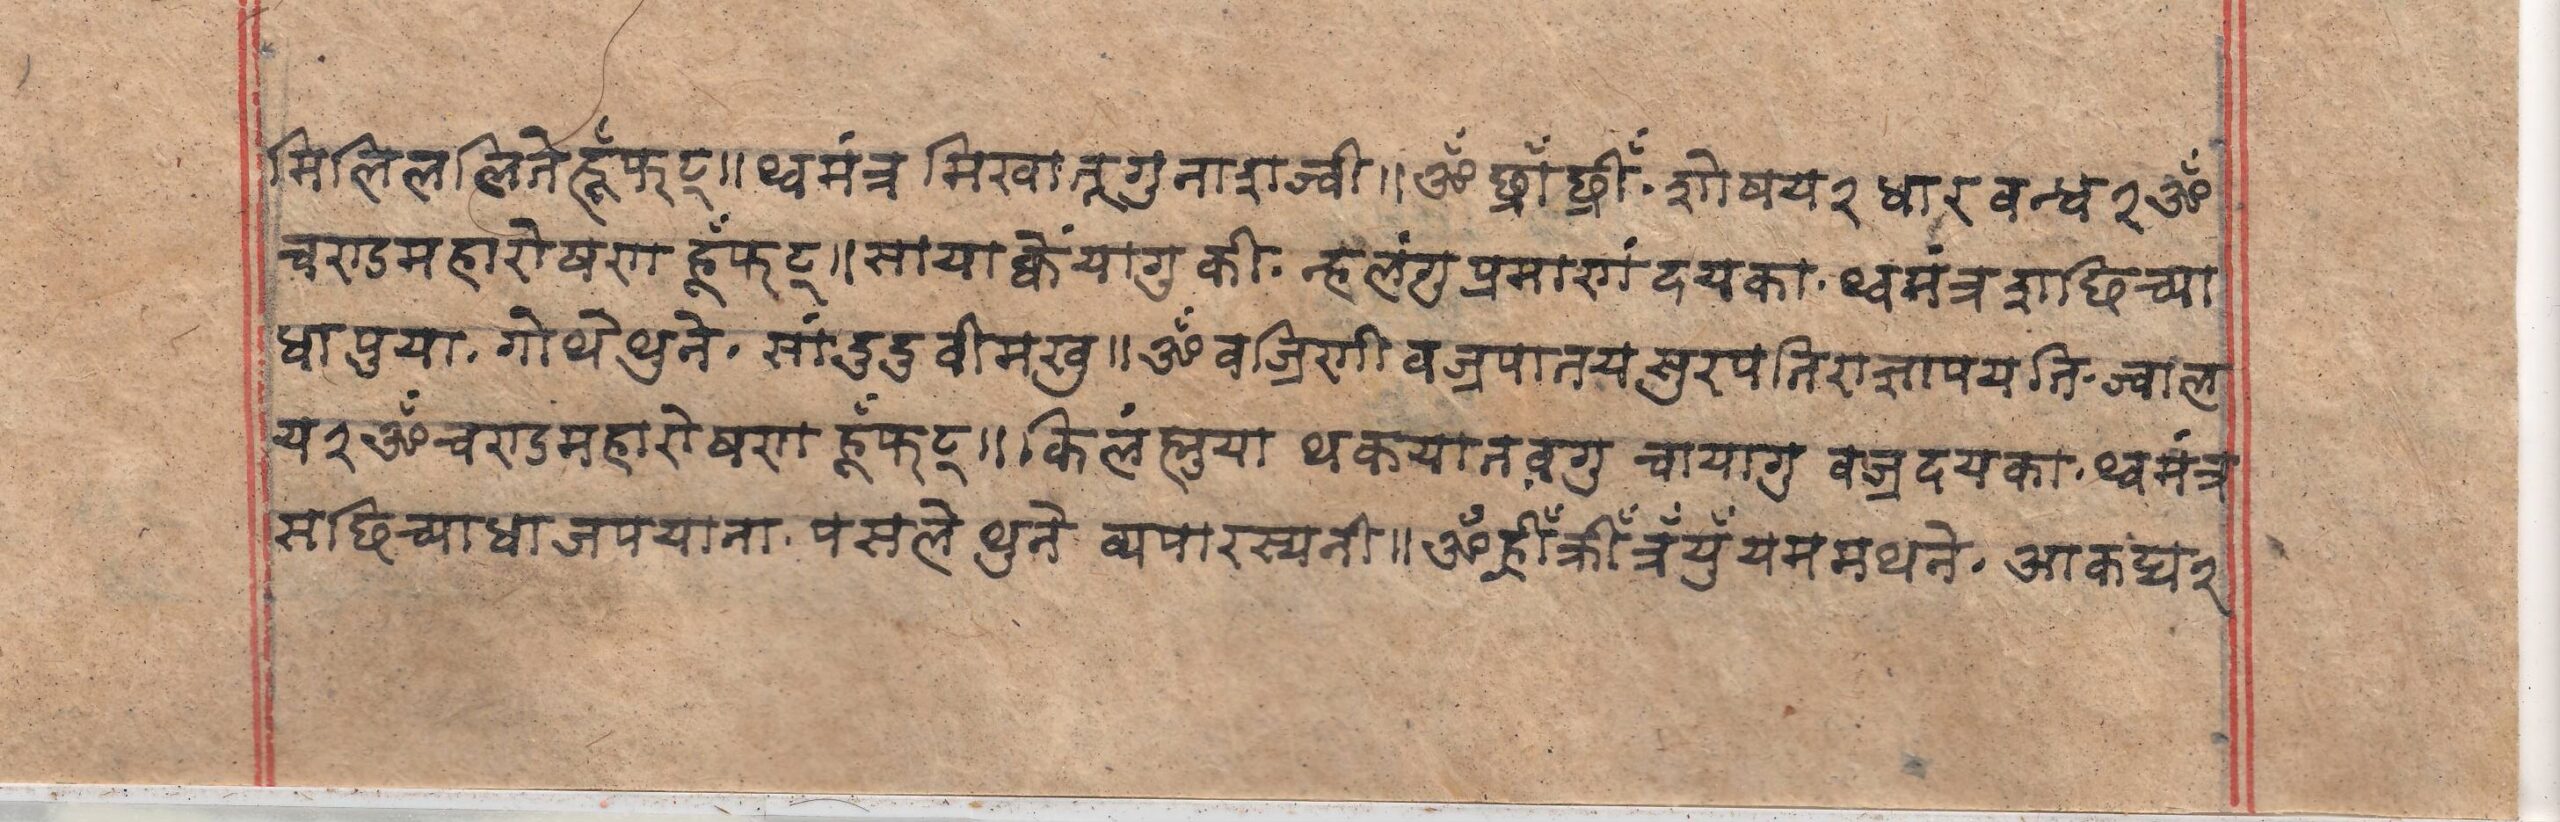 मिलिललिते हूँफट्॥ थ्वमंत्र मिखा तूगु नाशज्वी॥ ॐ छ्राँ छ्रीँ· शोषय२ धार बन्ध२ ॐ
चराडमहारोषरा हूँफट्॥ साया क्वेंयागु की· न्हलंगु प्रमारां दयका· थ्वमंत्र शछिच्या
धा पुया· गोथे थुने· सां दुदु वीमखु॥ ॐ वज्रिणी वज्रपातय सुरपतिराज्ञापयति· ज्वाल
य२ ॐ चराडमहारोषरा हूँफट्॥ किलं ह्लुया थकयातवगु चायागु वज्र दयका· थ्वमंत्र
सछिच्याधा जपयाना· पसले थुने व्यपारस्यनी॥ ॐ ह्रीँ क्रीँ त्रँ युँ यममथने· आकढ्ढ२